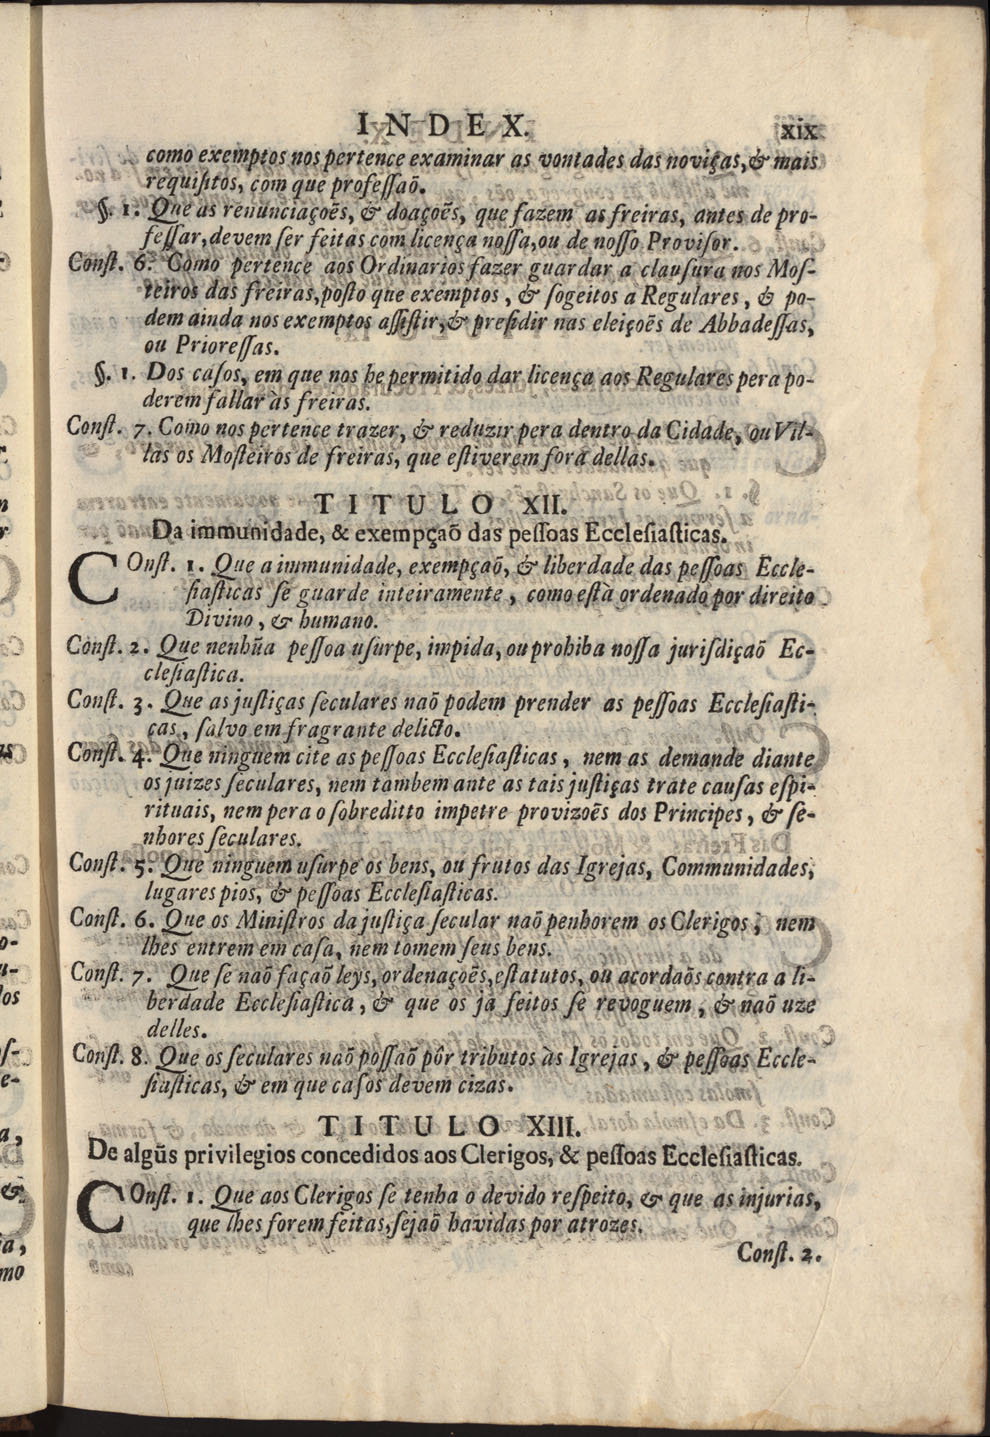 INDEX. xix
como exemptos nos pertence examinar as vontades das noviças, & mais
requiſitos, com que profeſſaõ.
§. 1. Que as renunciaçoẽs, & doaçoẽs, que fazem as freiras, antes de pro-
feſſar, devem ſer feitas com licença noſſa, ou de noſſo Proviſor.
Conſt. 6. Como pertence aos Ordinarios fazer guardar a clauſura nos Moſ-
teiros das freiras, poſto que exemptos, & ſogeitos a Regulares, & po-
dem ainda nos exemptos aſſiſtir, & preſidir nas eleiçoẽs de Abbadeſſas,
ou Prioreſſas.
§. 1. Dos caſos, em que nos he permitido dar licença aos Regulares pera po-
derem fallar às freiras.
Conſt. 7. Como nos pertence trazer, & reduzir pera dentro da Cidade, ou Vil-
las os Moſteiros de freiras, que eſtiverem fora dellas.
TITULO XII.
Da immunidade, & exempçaõ das peſſoas Eccleſiaſticas.
COnſt. 1. Que a immunidade, exempçaõ, & liberdade das peſſoas Eccle-
ſiaſticas ſe guarde inteiramente, como eſtà ordenado por direito
Divino, & humano.
Conſt. 2. Que nenhũa peſſoa uſurpe, impida, ou prohiba noſſa juriſdiçaõ Ec-
cleſiaſtica.
Conſt. 3. Que as juſtiças ſeculares naõ podem prender as peſſoas Eccleſiaſti-
cas, ſalvo em fragrante delicto.
Conſt. 4. Que ninguem cite as peſſoas Eccleſiaſticas, nem as demande diante
os juizes ſeculares, nem tambem ante as tais juſtiças trate cauſas eſpi-
rituais, nem pera o ſobreditto impetre provizoẽs dos Principes, & ſe-
nhores ſeculares.
Conſt. 5. Que ninguem uſurpe os bens, ou frutos das Igrejas, Communidades,
lugares pios, & peſſoas Eccleſiaſticas.
Conſt. 6. Que os Miniſtros da juſtiça ſecular naõ penhorem os Clerigos, nem
lhes entrem em caſa, nem tomem ſeus bens.
Conſt. 7. Que ſe naõ façaõ leys, ordenaçoẽs, eſtatutos, ou acordaõs contra a li-
berdade Eccleſiaſtica, & que os ja feitos ſe revoguem, & naõ uze
delles.
Conſt. 8. Que os ſeculares naõ poſſaõ pôr tributos às Igrejas, & peſſoas Eccle-
ſiaſticas, & em que caſos devem cizas.
TITULO XIII.
De algũs privilegios concedidos aos Clerigos, & peſſoas Eccleſiaſticas.
COnſt. 1. Que aos Clerigos ſe tenha o devido reſpeito, & que as injurias,
que lhes forem feitas, ſejaõ havidas por atrozes.
Conſt. 2.